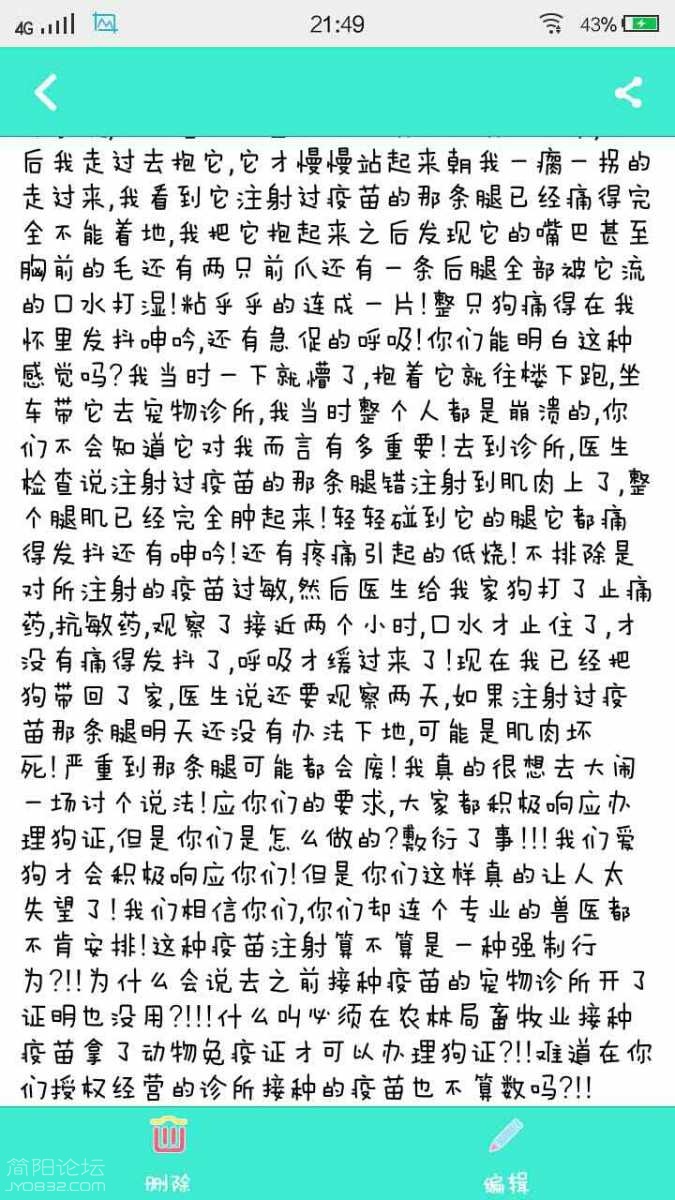 4G 21:49 43%
后我走过去抱它,它才慢慢站起来朝我一瘸一拐的
走过来,我看到它注射过疫苗的那条腿已经痛得完
全不能着地,我把它抱起来之后发现它的嘴巴甚至
胸前的毛还有两只前爪还有一条后腿全部被它流
的口水打湿!粘乎乎的连成一片!整只狗痛得在我
怀里发抖呻吟,还有急促的呼吸!你们能明白这种
感觉吗?我当时一下就懵了,抱着它就往楼下跑,坐
车带它去宠物诊所,我当时整个人都是崩溃的,你
们不会知道它对我而言有多重要!去到诊所,医生
检查说注射过疫苗的那条腿错注射到肌肉上了,整
个腿肌已经完全肿起来!轻轻碰到它的腿它都痛
得发抖还有呻吟!还有疼痛引起的低烧!不排除是
对所注射的疫苗过敏,然后医生给我家狗打了止痛
药,抗敏药,观察了接近两个小时,口水才止住了,才
没有痛得发抖了,呼吸才缓过来了!现在我已经把
狗带回了家,医生说还要观察两天,如果注射过疫
苗那条腿明天还没有办法下地,可能是肌肉坏
死!严重到那条腿可能都会废!我真的很想去大闹
一场讨个说法!应你们的要求,大家都积极响应办
理狗证,但是你们是怎么做的?敷衍了事!!!我们爱
狗才会积极响应你们!但是你们这样真的让人太
失望了!我们相信你们,你们却连个专业的兽医都
不肯安排!这种疫苗注射算不算是一种强制行
为?!!为什么会说去之前接种疫苗的宠物诊所开了
证明也没用?!!!什么叫必须在农林局畜牧业接种
疫苗拿了动物免疫证才可以办理狗证?!!难道在你
们授权经营的诊所接种的疫苗也不算数吗?!!
删除 编辑
简阳论坛
JY0832.com